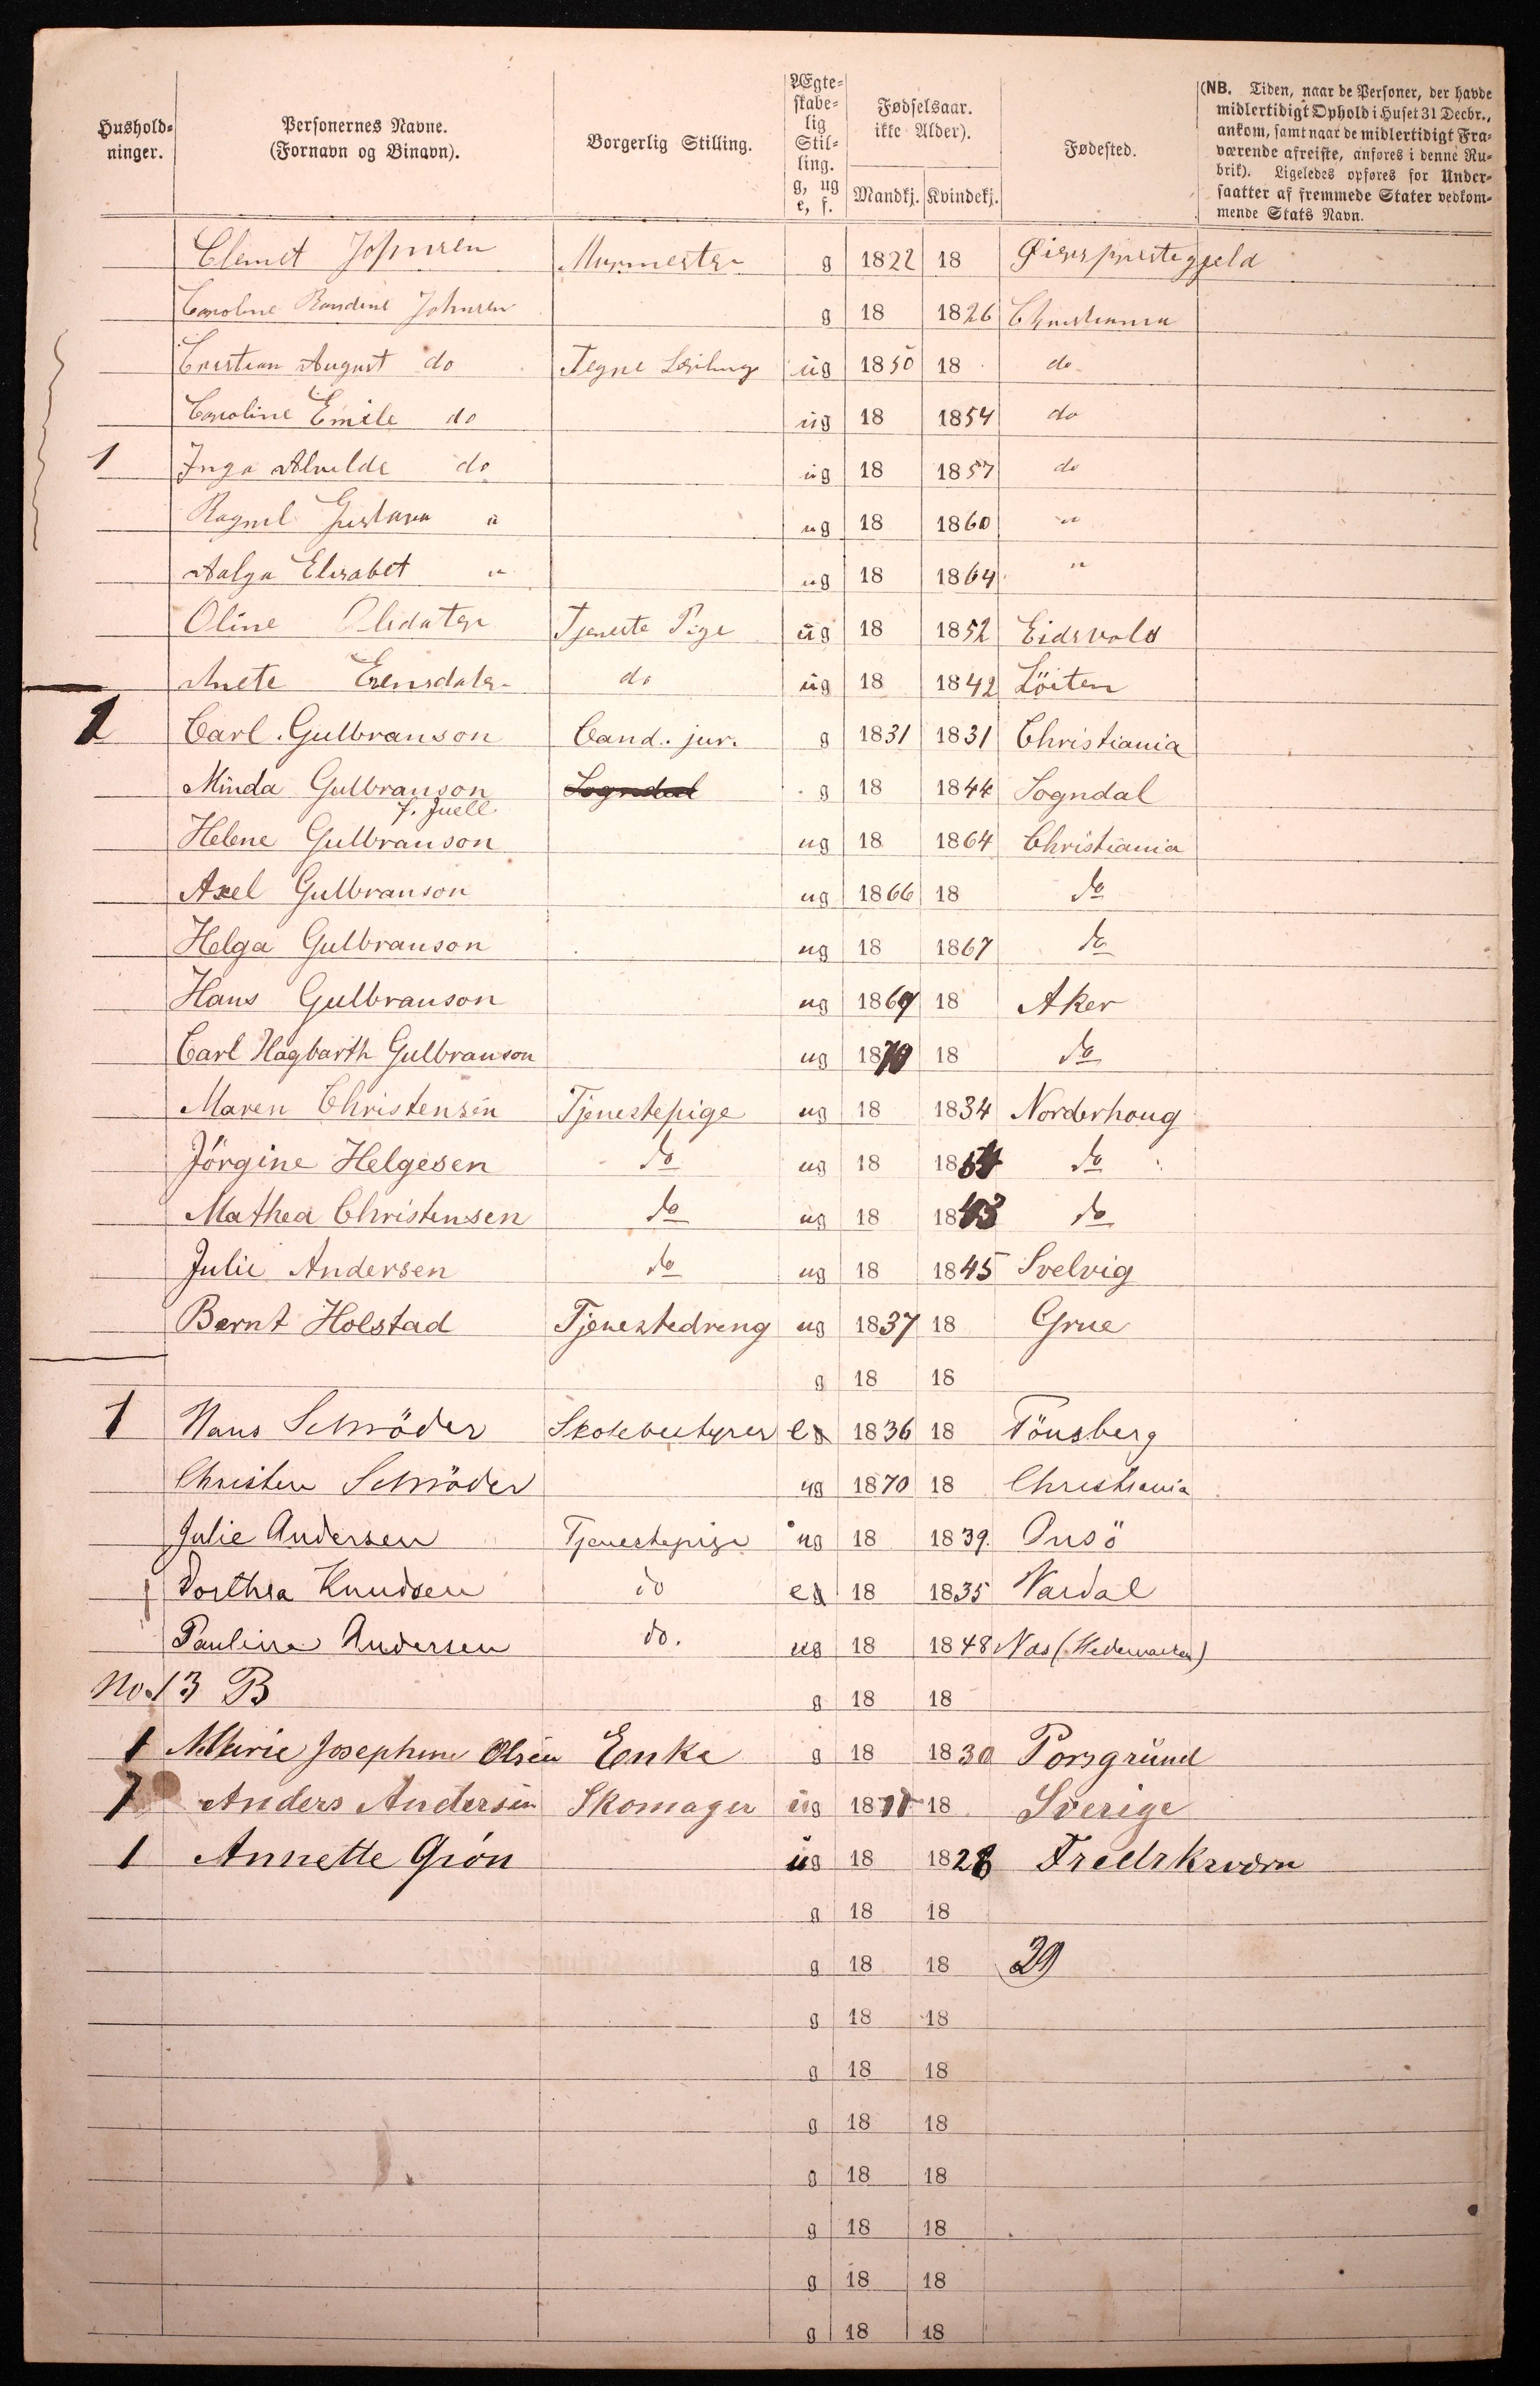 Hushold-
ninger.
Personernes Navne.
(Fornavn og Binavn).
Borgerlig Stilling.
Ægte-
skabe-
lig
Stil-
ling.
g, ug
e, f.
Fødselsaar.
ikke Alder).
Mandkj. Kvindekj.
Fødested.
(NB. Tiden, naar de Personer, der havde
midlertidigt Ophold i Huset 31 Decbr.,
ankom, samt naar de midlertidigt Fra-
værende afreiste, anføres i denne Ru-
brik). Ligeledes opføres for Under-
saatter af fremmede Stater vedkom-
mende Stats Navn.
Clemet Johnsen Murmester g 1822 18 Øiers prestegjeld
Caroline Randine Johnsen g 18 1826 Christiania
Cristian August do Tegne Lærling ug 1850 18 do
Caroline Emile do ug 18 1854 do
1 Inga Alvilde do ug 18 1857 do
Ragnil Gustava " ug 18 1860 "
Aalga Elisabet " ug 18 1864 "
Oline Tjeneste Pige ug 18 1852 Eidsvold
Anete do ug 18 1842 Löiten
1 Carl Gulbranson Cand. jur. g 1831 1831 Christiania
Minda Gulbranson Sogndal g 18 1844 Sogndal
f. Juell
Helene Gulbranson ug 18 1864 Christiania
Axel Gulbranson ug 1866 18 do
Helga Gulbranson ug 18 1867 do
Hans Gulbranson ug 1869 18 Aker
Carl Hagbarth Gulbranson ug 1870 18 do
Maren Christensen Tjenestepige ug 18 1834 Norderhoug
Jörgine Helgesen do ug 18 1854 do
Mathea Christensen do ug 18 1843 do
Julie Andersen do ug 18 1845 Svelvig
Bernt Holstad Tjenestedreng ug 1837 18 Grue
g 18 18
1 Hans Schröder Skolebestyrer e 1836 18 Tönsberg
Christen Schröder ug 1870 18 Christiania
Julie Andersen Tjenestepige ug 18 1839. Onsö
Dorthea Knudsen do e 18 1835 Vardal
Pauline Andersen do. ug 18 1848 Næs (Hedemarken)
No. 13 B g 18 18
1 Marie Josephine Olsen Enke g 18 1830 Porsgrund
1 Anders Andersen Skomager ug 18 18 Sverige
1 Annette Grön ug 18 1828 Fredrksværn
g 18 18
g 18 18 29
g 18 18
g 18 18
g 18 18
g 18 18
g 18 18
g 18 18
g 18 18